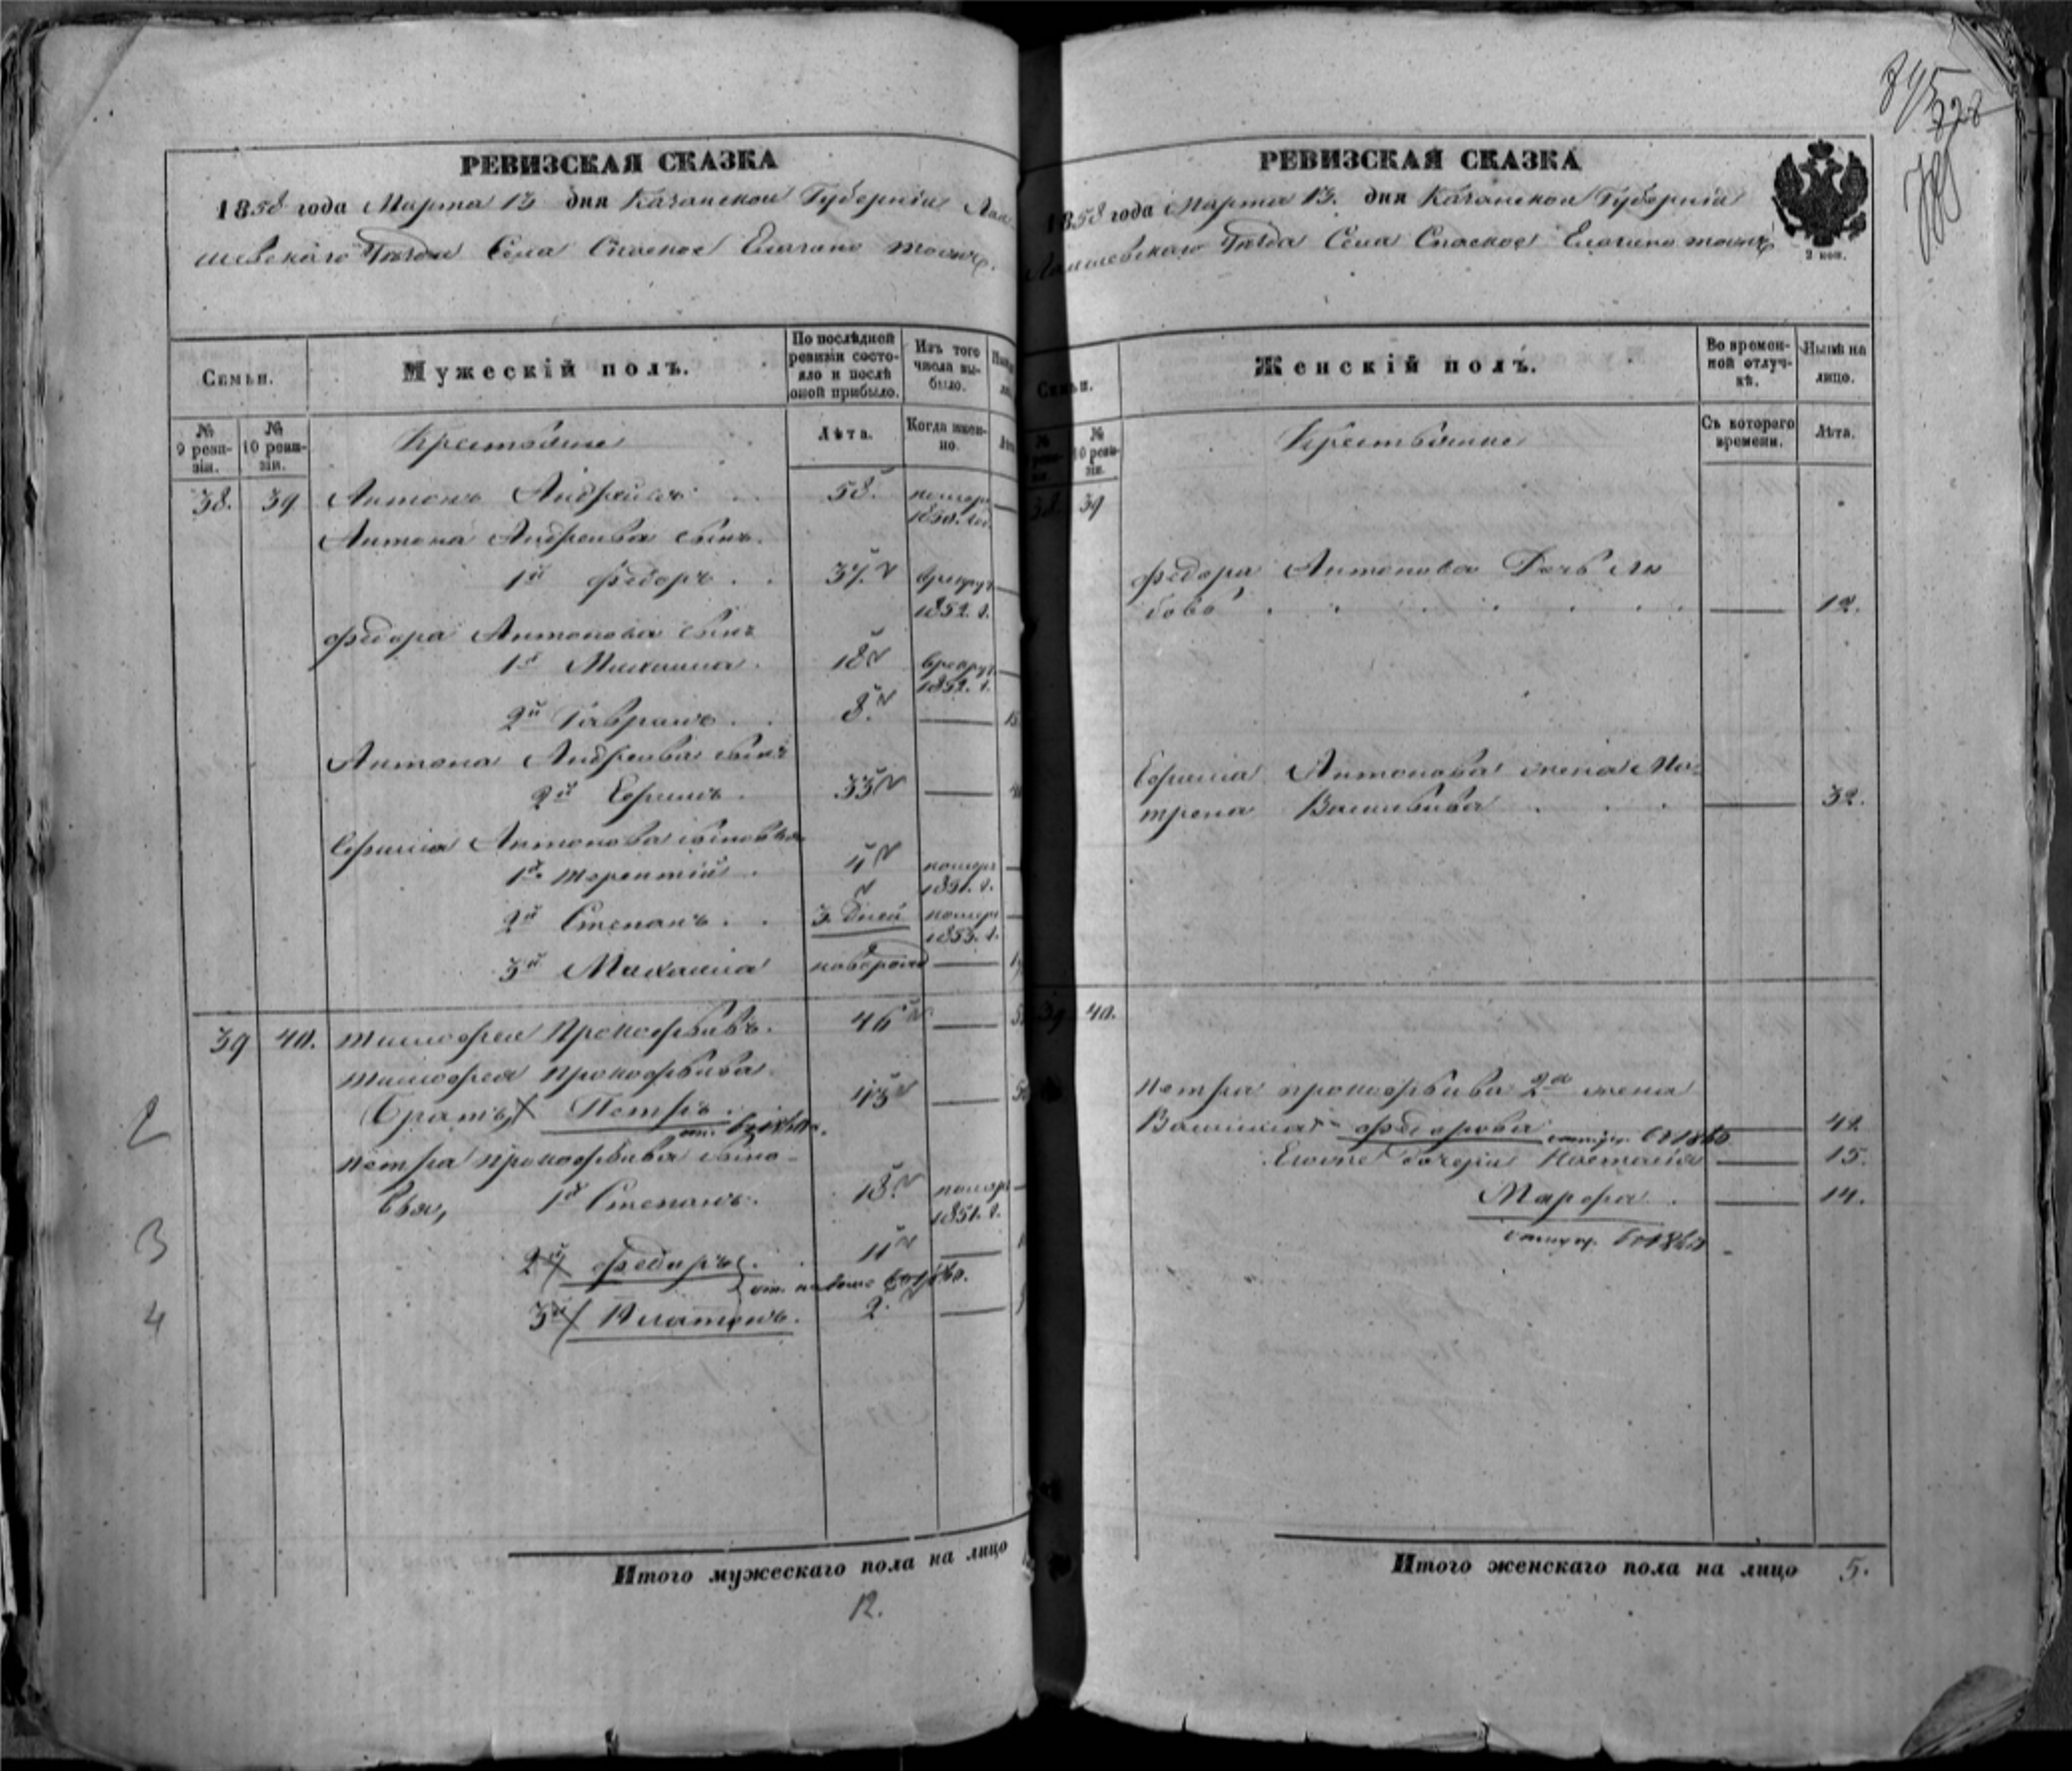 РЕВИЗСКАЯ СКАЗКА
1858 года Марта 13 дня Казанской Губерніи Лаи
шевскаго Уезда Села Спаское Елагино тожъ.
Семьи.
Мужескій полъ.
По послѣдней ревизіи состояло и послѣ оной прибыло.
Изъ того числа выбыло.
№ 9 ревизіи.
№ 10 ревизіи.
Крестьяне
Лѣта.
Когда именно.
38. 39 Антонъ Андреевъ 58. помер 1850.
Антона Андреева сынъ.
1й Федоръ. 37. в рекру 1852. г.
Федора Антонова сынъ
1й Михаила. 18 в рекру 1852. г.
2й Гаврилъ. 8.
Антона Андреева сынъ
2й Ефимъ. 33
Ефима Антонова сыновья
1й Терентій. 4 помер 1851. г.
2й Степанъ. 3 дней помер 1853. г.
3й Михаила новорож
39 40. Тимофей Прокофьевъ. 46
Тимофея Прокофьева
Братъ, Петръ. 43
Петра Прокофьева сыно-
вья, 1й Степанъ. 18. помер 1851. г.
2й Федоръ. 11
3й Платонъ. 2.
2
3
4
Итого мужескаго пола на лицо
12.
845
828
РЕВИЗСКАЯ СКАЗКА
1858 года Марта 13. дня Казанской Губерніи
Лаишевскаго Уезда Села Спаское Елагино тожъ
2 коп.
Семьи.
Женскій полъ.
Во временной отлучкѣ.
Нынѣ на лицо.
№ 10 ревизіи.
Крестьяне
Съ котораго времени.
Лѣта.
38. 39
Федора Антонова Дочь Лю
бовь 12.
Ефима Антонова жена Ма-
трена Васильева 32.
39 40.
Петра Прокофьева 2я жена
Василиса Федорова 42.
Евоне дочери Настасья 15.
Марфа. 14.
Итого женскаго пола на лицо 5.